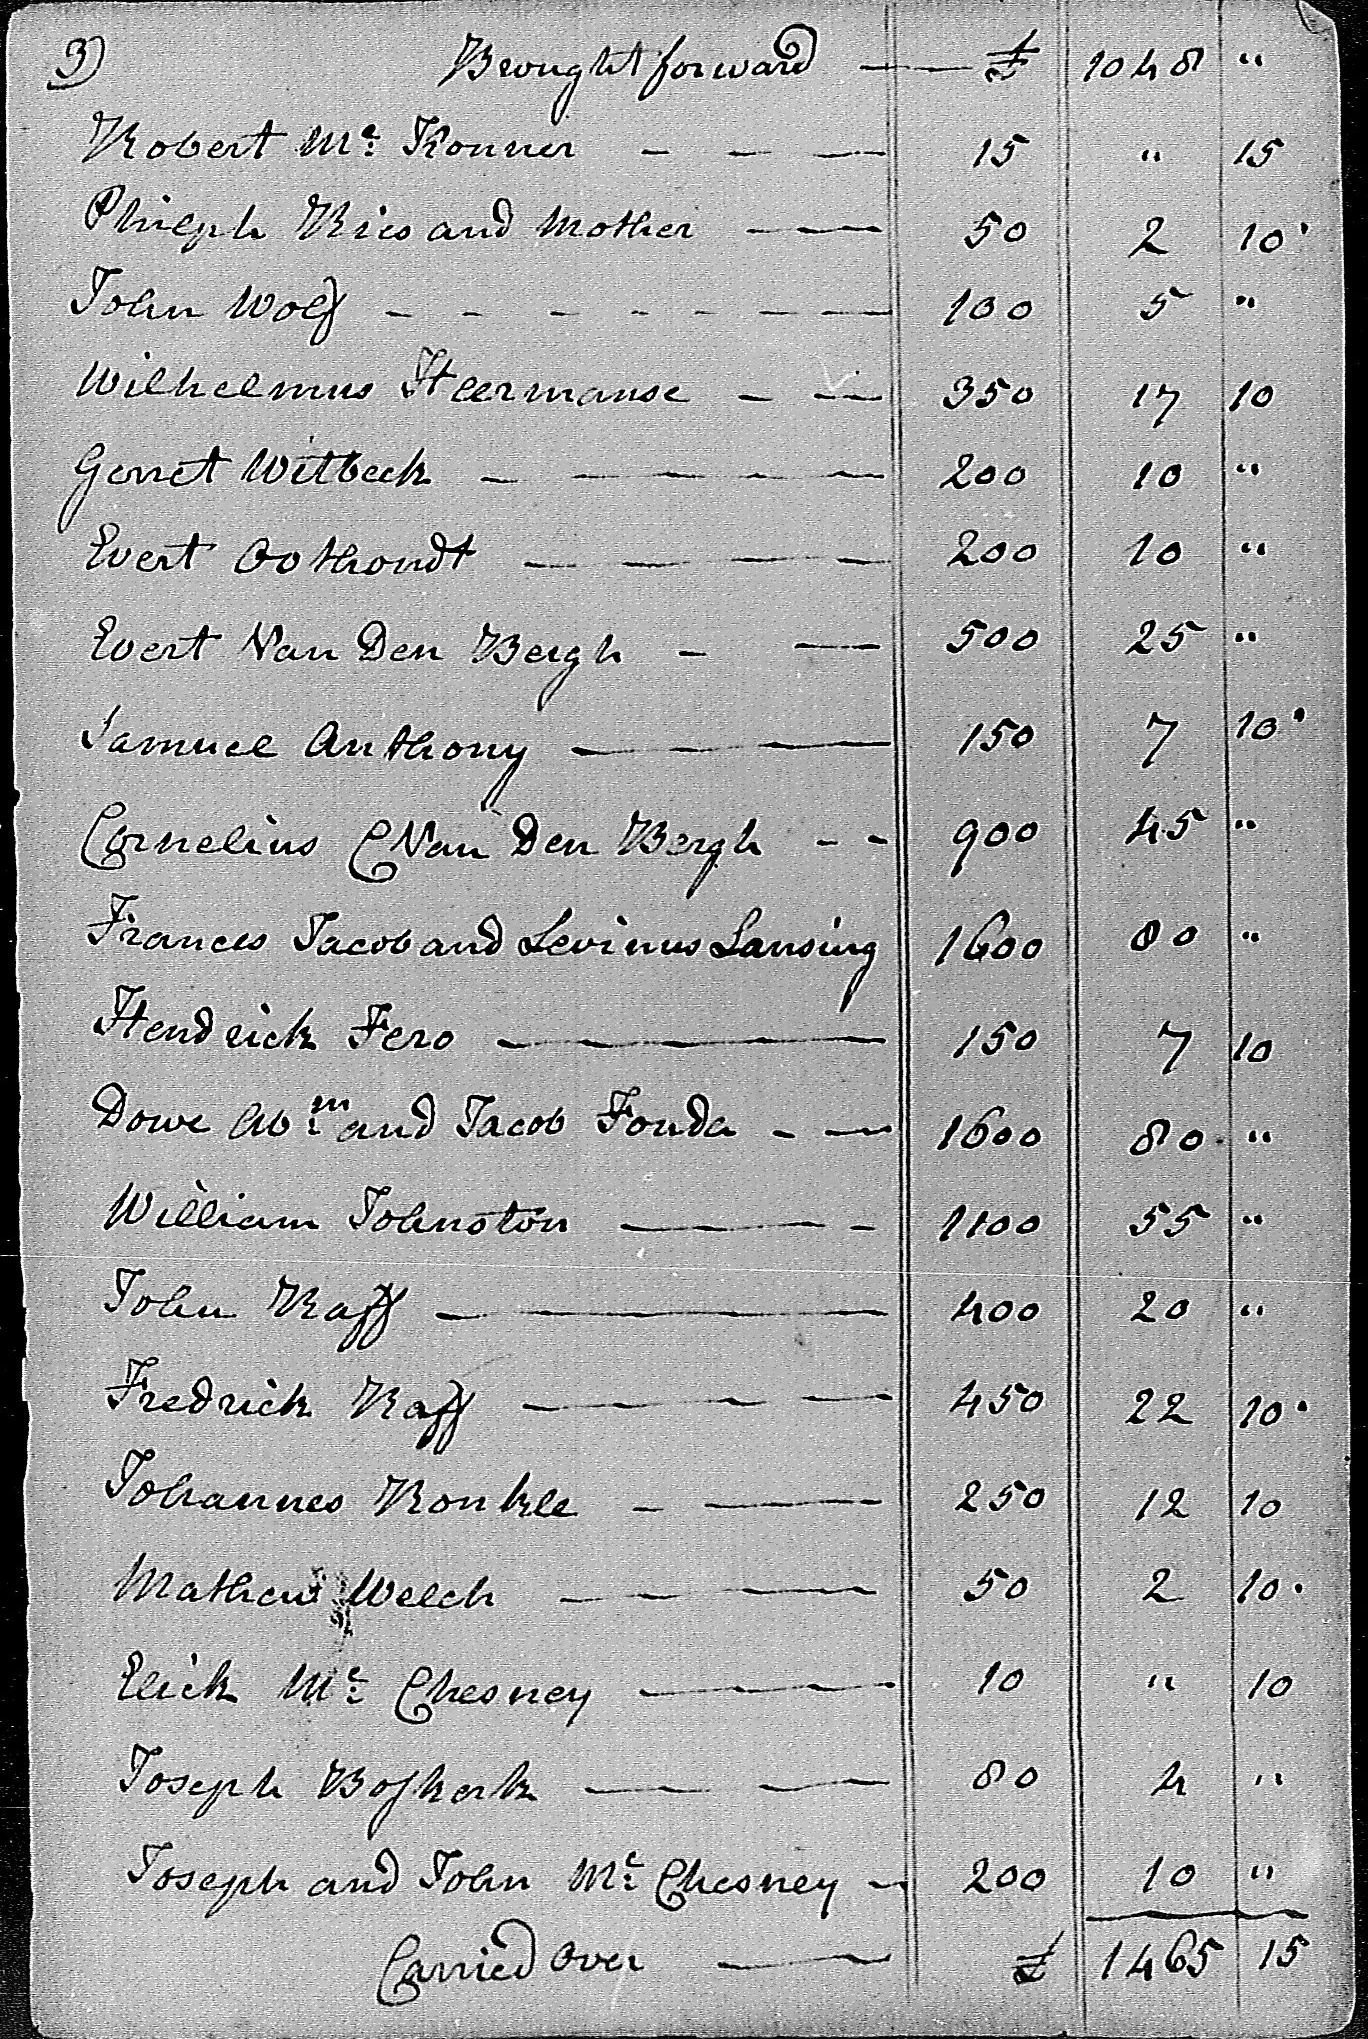 3) Brought forward — £ 1048 "
Robert Mc. Konner - - — 15 " 15
Phileph Ries and Mother — — 50 2 10
John Wolf - - - - - - — 100 5 "
Wilhelmus Heermanse - — 350 17 10
Gerret Witbeck - — — — 200 10 "
Evert Oothoudt — — — — 200 10 "
Evert Van Den Bergh - — 500 25 "
Samuel Anthony — — 150 7 10
Cornelius C Van Den Bergh - - 900 45 "
Frances Jacob and Levinus Lansing 1600 80 "
Hendrick Fero — — 150 7 10
Dowe Wm. and Jacob Fonda - — 1600 80 "
William Johnston — — - 1100 55 "
John Raff — — 400 20 "
Fredrick Raff — — - — 450 22 10
Johannes Ronkle - — 250 12 10
Mathew Welch — — 50 2 10
Elick Mc. Chesney — — 10 " 10
Joseph Boskerk — — 80 4 "
Joseph and John Mc. Chesney — 200 10 "
Carried Over — — £ 1465 15